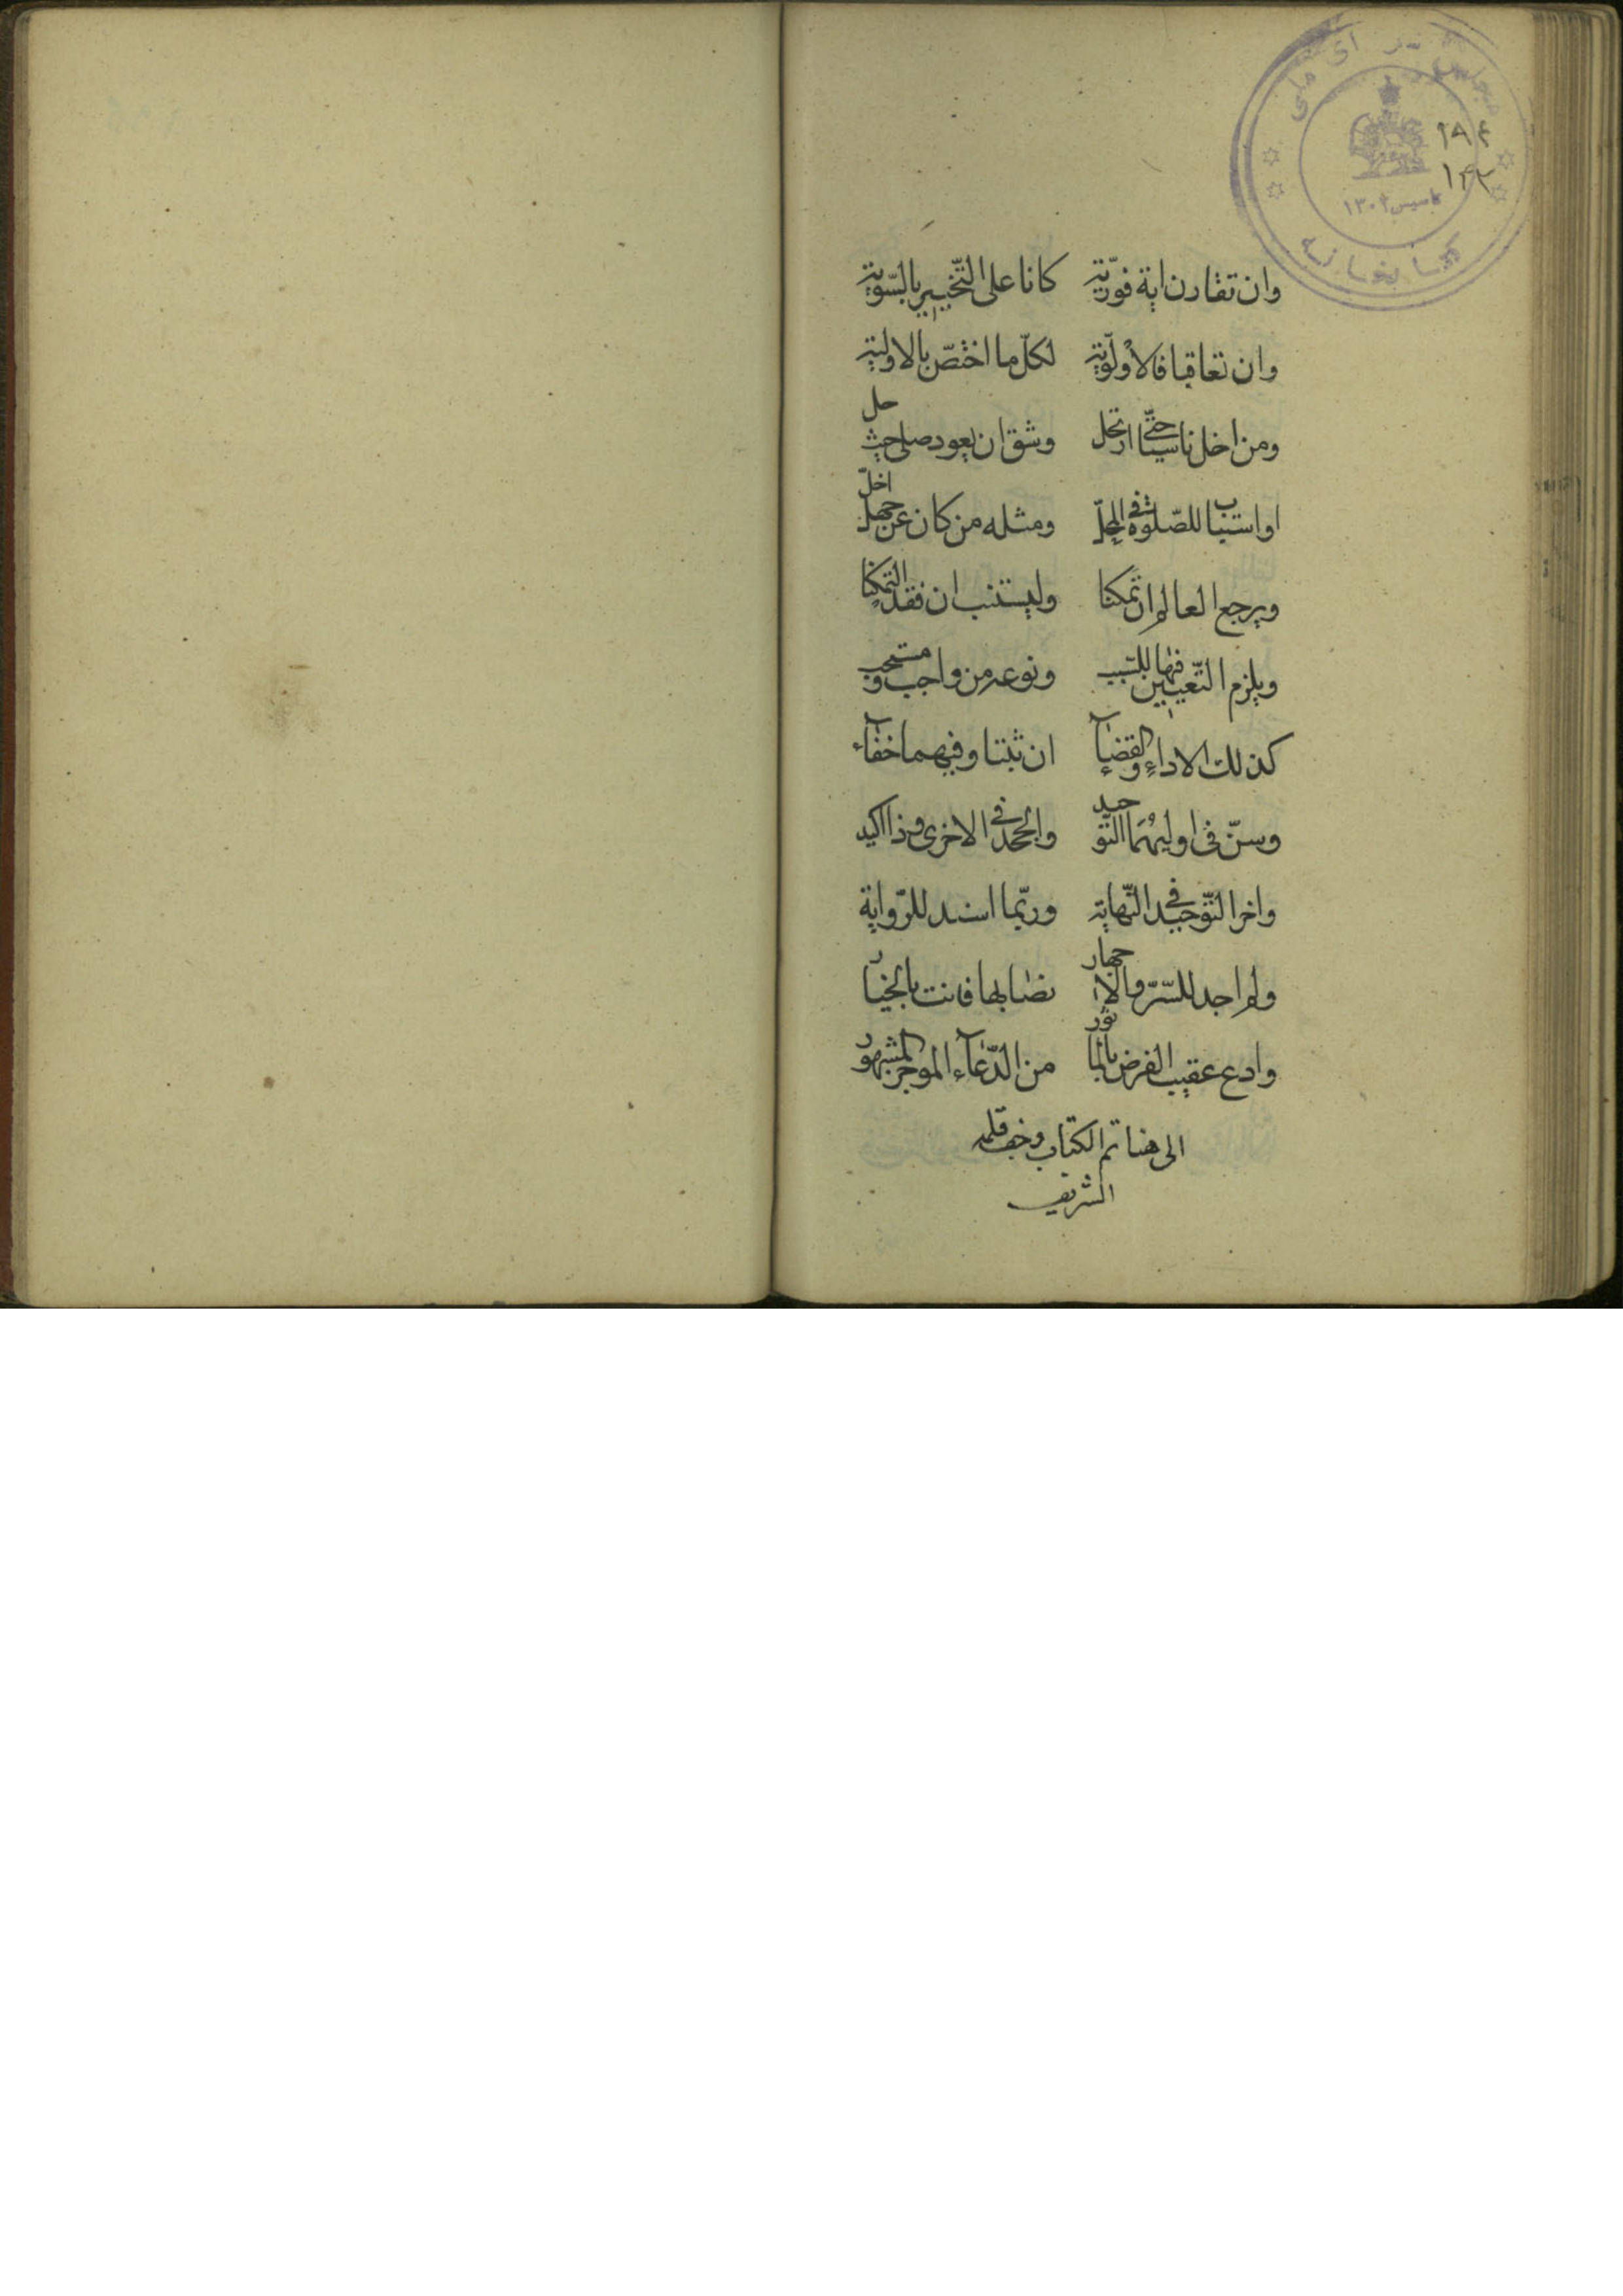 مجلس شورای ملی
۱۹۴
۱۴۲
تاسیس ۱۳۰۲
کتابخانه
وان تقارن اية فوّريّة كانا على التّخيير بالسّوية
وان تعاقبا فالاولويّة لكلّ ما اختصّ بالاوليّة
ومن اخل ناسيا حتّى ارتحل وشق ان يعود صلى حيث حل
او استناب للصّلوة في المحلّ ومثله من كان عن جهل اخلّ
ويرجع العالم ان تمكنا وليستنب ان فقد التمكنا
ويلزم التّعيين فيها للسّبب ونوعه من واجب ومستحب
كذلك الاداء والقضآء ان ثبتا وفيهما خفآء
وسنّ فى اوليهما التّوحيد والحمد في الاخرى وذا اكيد
واخر التّوحيد في النّهاية وربّما اسند للرّواية
ولم اجد للسّرّ والاجهار نصّا بها فانت بالخيار
وادع عقيب الفرض بالماثور من الدّعآء الموجز المشهور
الى هنا تم الكتاب وجف قلمه
الشريف